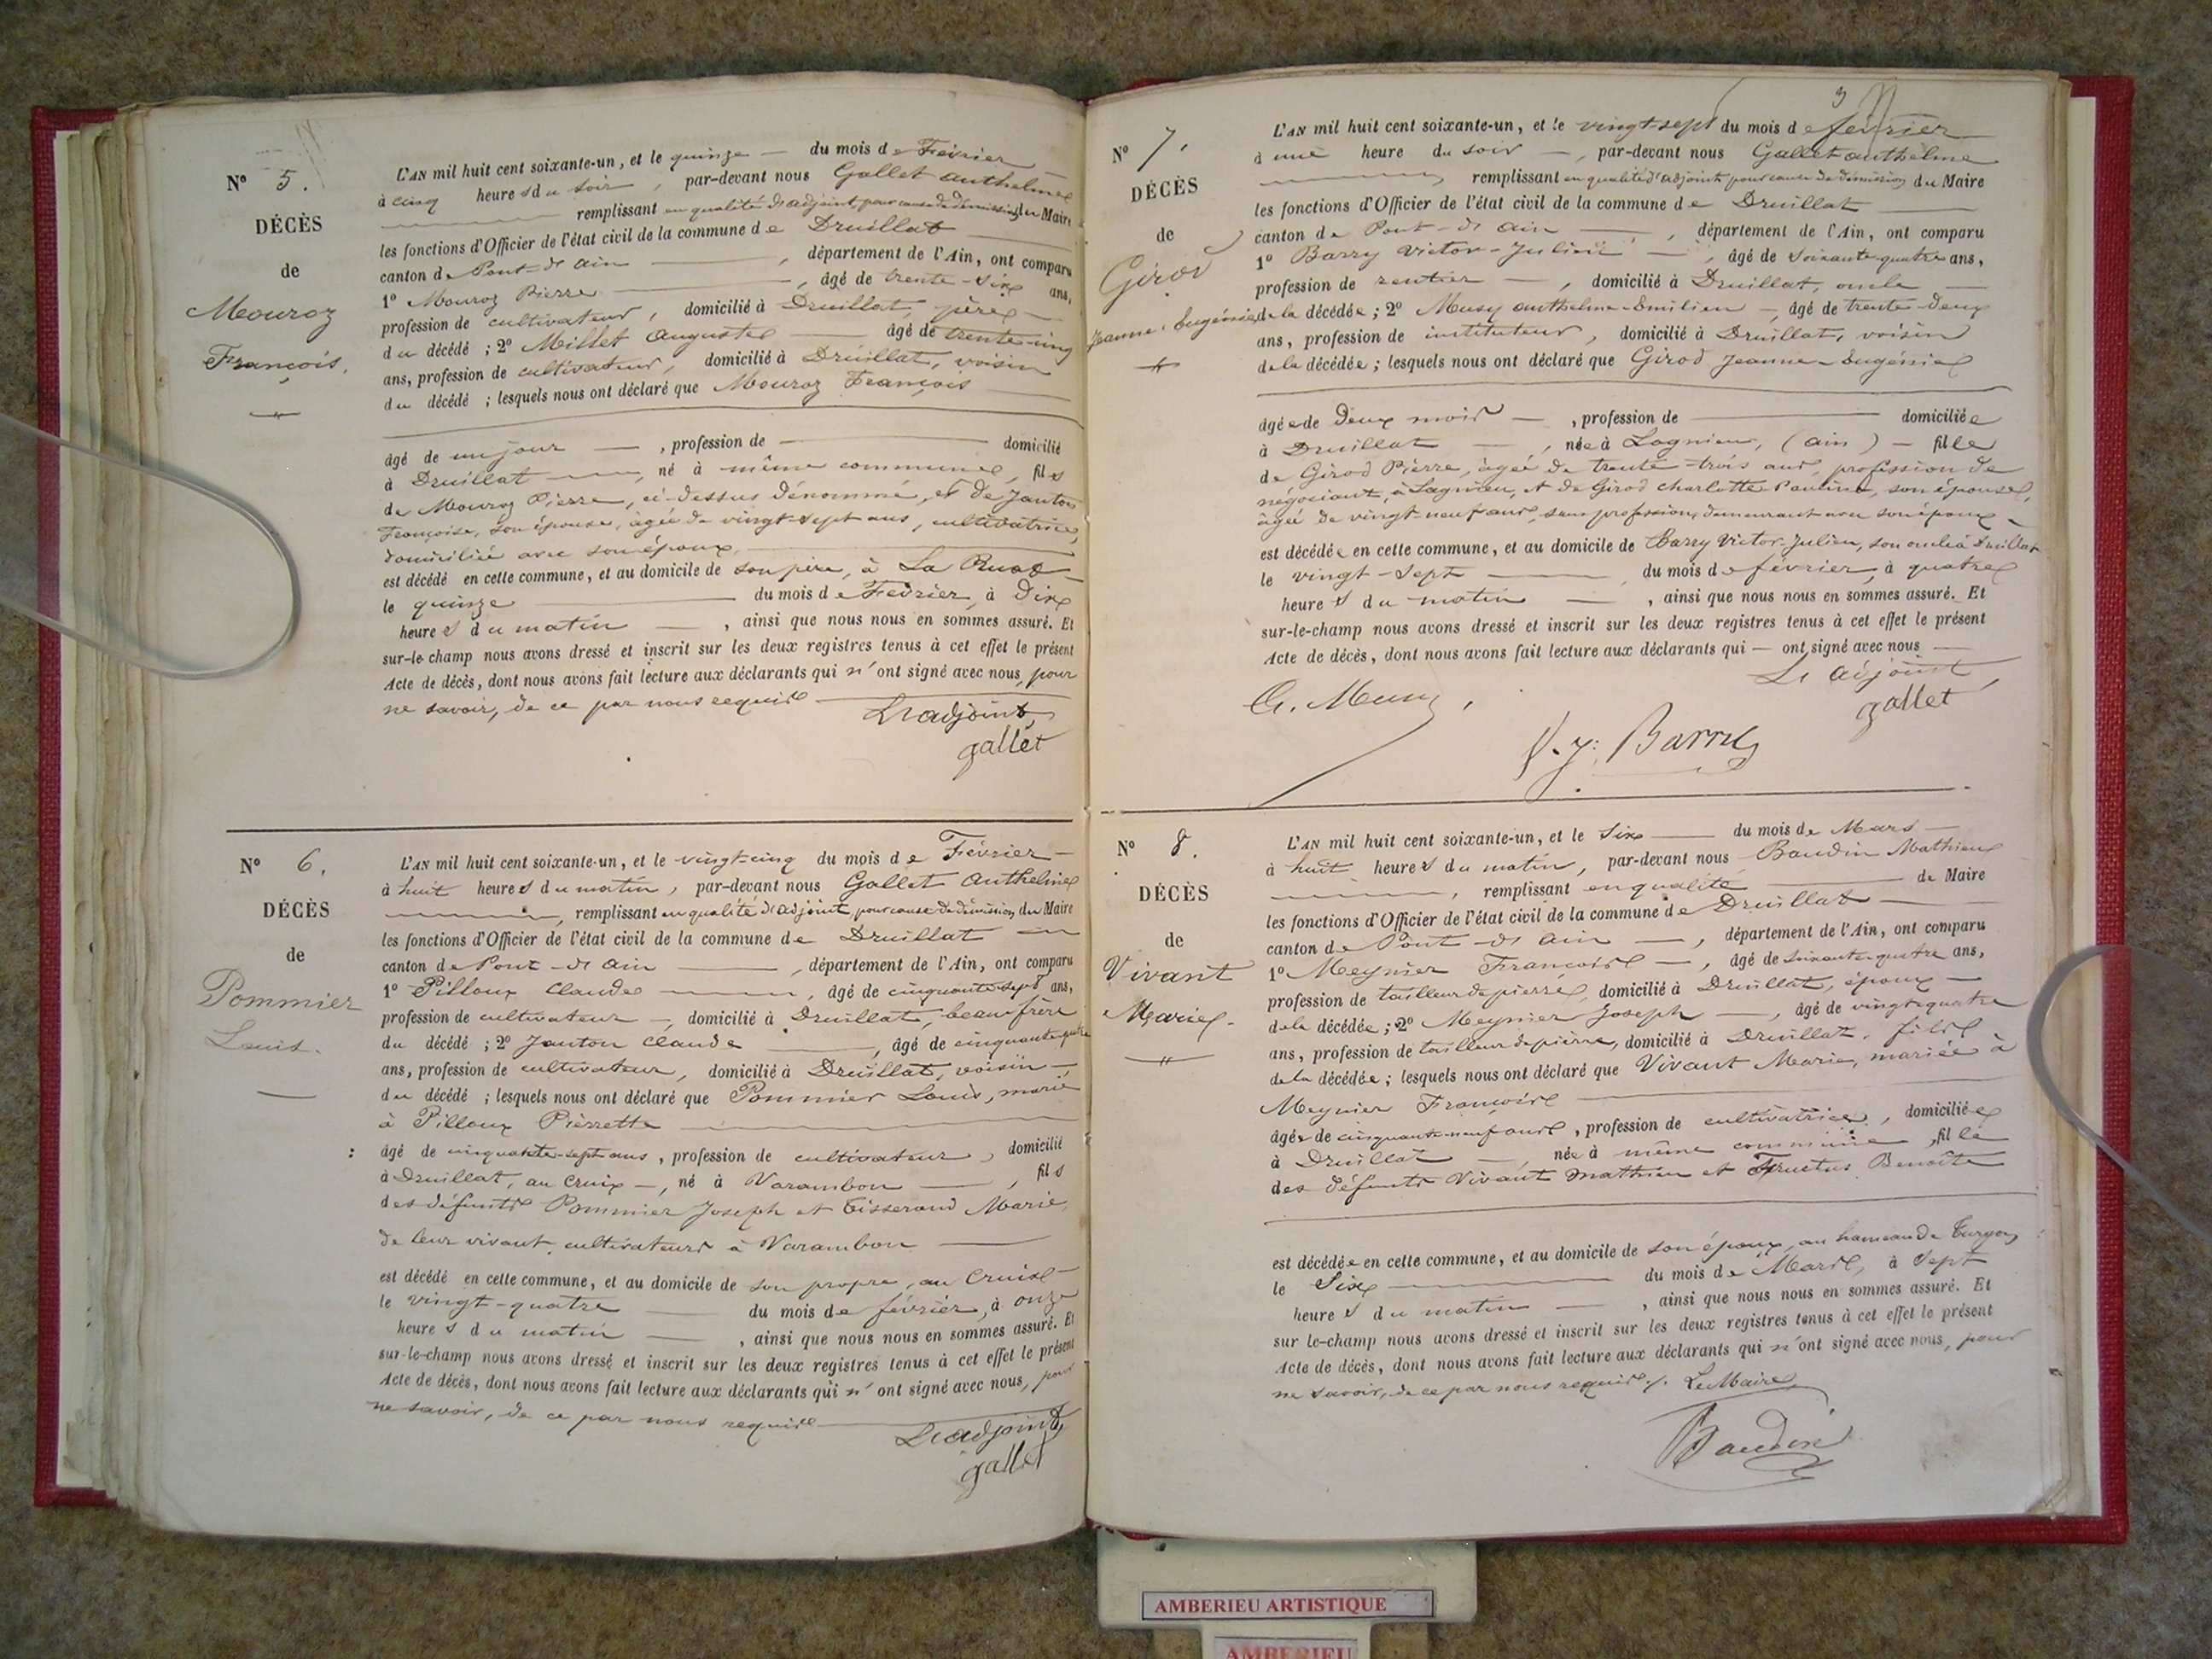 N° 5.
DÉCÈS
de
Mouroz
François.
L'AN mil huit cent soixante-un, et le quinze — du mois de Février
à cinq heures du soir, par-devant nous Gallet Anthelme
remplissant en qualité d'adjoint, pour cause de démission du Maire
les fonctions d'Officier de l'état civil de la commune de Druillat
canton de Pont-d'Ain, département de l'Ain, ont comparu
1° Mouroz Pierre, âgé de trente-six ans,
profession de cultivateur, domicilié à Druillat, père
du décédé ; 2° Millet Auguste âgé de trente-cinq
ans, profession de cultivateur, domicilié à Druillat, voisin
du décédé ; lesquels nous ont déclaré que Mouroz François
âgé de un jour —, profession de — domicilié
à Druillat —, né à même commune, fils
de Mouroz Pierre, ci-dessus dénommé, et de Janton
Françoise, son épouse, âgée de vingt-sept ans, cultivatrice,
domiciliée avec son époux.
est décédé en cette commune, et au domicile de son père, à La Ruaz
le quinze — du mois de Février, à dix
heures du matin —, ainsi que nous nous en sommes assuré. Et
sur-le-champ nous avons dressé et inscrit sur les deux registres tenus à cet effet le présent
Acte de décès, dont nous avons fait lecture aux déclarants qui n'ont signé avec nous, pour
ne savoir, de ce par nous requis
L'adjoint,
gallet
N° 6.
DÉCÈS
de
Pommier
Louis.
L'AN mil huit cent soixante-un, et le vingt-cinq du mois de Février —
à huit heures du matin, par-devant nous Gallet Anthelme
, remplissant en qualité d'adjoint, pour cause de démission du Maire
les fonctions d'Officier de l'état civil de la commune de Druillat
canton de Pont-d'Ain, département de l'Ain, ont comparu
1° Pilloux Claude, âgé de cinquante-sept ans,
profession de cultivateur —, domicilié à Druillat, beau-frère
du décédé ; 2° Janton Claude, âgé de cinquante-quatre
ans, profession de cultivateur, domicilié à Druillat, voisin —
du décédé ; lesquels nous ont déclaré que Pommier Louis, marié
à Pilloux Pierrette
âgé de cinquante-sept ans, profession de cultivateur, domicilié
à Druillat, au Cruix —, né à Varambon —, fils
des défunts Pommier Joseph et Tisserand Marie,
de leur vivant cultivateurs à Varambon
est décédé en cette commune, et au domicile de son propre, au Cruix
le vingt-quatre — du mois de février, à onze
heures du matin —, ainsi que nous nous en sommes assuré. Et
sur-le-champ nous avons dressé et inscrit sur les deux registres tenus à cet effet le présent
Acte de décès, dont nous avons fait lecture aux déclarants qui n'ont signé avec nous, pour
ne savoir, de ce par nous requis
L'adjoint,
gallet
3
N° 7.
DÉCÈS
de
Girod
Jeanne-Eugénie
L'AN mil huit cent soixante-un, et le vingt-sept du mois de février
à une heure du soir —, par-devant nous Gallet Anthelme
, remplissant en qualité d'adjoint pour cause de démission du Maire
les fonctions d'Officier de l'état civil de la commune de Druillat
canton de Pont-d'Ain —, département de l'Ain, ont comparu
1° Barry Victor-Julien —, âgé de soixante-quatre ans,
profession de rentier —, domicilié à Druillat, oncle
de la décédée ; 2° Musy Anthelme-Emilien —, âgé de trente-deux
ans, profession de instituteur, domicilié à Druillat, voisin
de la décédée ; lesquels nous ont déclaré que Girod Jeanne-Eugénie
âgée de deux mois —, profession de — domiciliée
à Druillat —, née à Lagnieu, (ain) — fille
de Girod Pierre, âgé de trente-trois ans, profession de
négociant, à Lagnieu, et de Girod Charlotte Pauline, son épouse,
âgée de vingt-neuf ans, sans profession, demeurant avec son époux
est décédée en cette commune, et au domicile de Barry Victor-Julien, son oncle à Druillat
le vingt-sept — du mois de février, à quatre
heures du matin —, ainsi que nous nous en sommes assuré. Et
sur-le-champ nous avons dressé et inscrit sur les deux registres tenus à cet effet le présent
Acte de décès, dont nous avons fait lecture aux déclarants qui — ont signé avec nous —
L'adjoint,
gallet
V. J. Barry
N° 8.
DÉCÈS
de
Vivant
Marie.
L'AN mil huit cent soixante-un, et le six — du mois de Mars —
à huit heures du matin, par-devant nous Baudin Mathieu
, remplissant en qualité — de Maire
les fonctions d'Officier de l'état civil de la commune de Druillat
canton de Pont-d'Ain —, département de l'Ain, ont comparu
1° Meynier François —, âgé de soixante-quatre ans,
profession de tailleur de pierre, domicilié à Druillat, époux —
de la décédée ; 2° Meynier Joseph —, âgé de vingt-quatre
ans, profession de tailleur de pierre, domicilié à Druillat, fils
de la décédée ; lesquels nous ont déclaré que Vivant Marie, mariée à
Meynier François
âgée de cinquante-neuf ans, profession de cultivatrice, domiciliée
à Druillat —, née à même commune, fille
des défunts Vivant Mathieu et Fructus Benoîte
est décédée en cette commune, et au domicile de son époux, au hameau de Turgon,
le Six — du mois de Mars, à sept
heures du matin —, ainsi que nous nous en sommes assuré. Et
sur le-champ nous avons dressé et inscrit sur les deux registres tenus à cet effet le présent
Acte de décès, dont nous avons fait lecture aux déclarants qui n'ont signé avec nous, pour
ne savoir, de ce par nous requis. Le Maire,
Baudin
AMBERIEU ARTISTIQUE
AMBERIEU